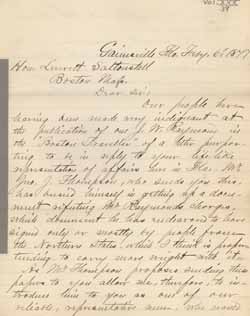 Gainesville Fla. Feby. 6th 1877
Hon. Leverett Saltonstall
Boston Mass
Dear Sir:
Our people here
having been made very indignant at
the publication of one J. W. Raymond in
the "Boston Traveller" of a letter purpor-
ting to be in reply to your life-like
representation of affairs here in Fla. Mr.
Geo. J. Thompson who sends you this
has busied himself in getting up a docu-
ment refuting Mr Raymonds charges,
which document he has endeavored to have
signed only or mostly by people from
the Northern States, which I think is proper
tending to carry more weight with it.
As Mr Thompson proposes sending these
papers to you allow me, therefore, to in-
troduce him to you as one of our
reliable, representative men, who wants